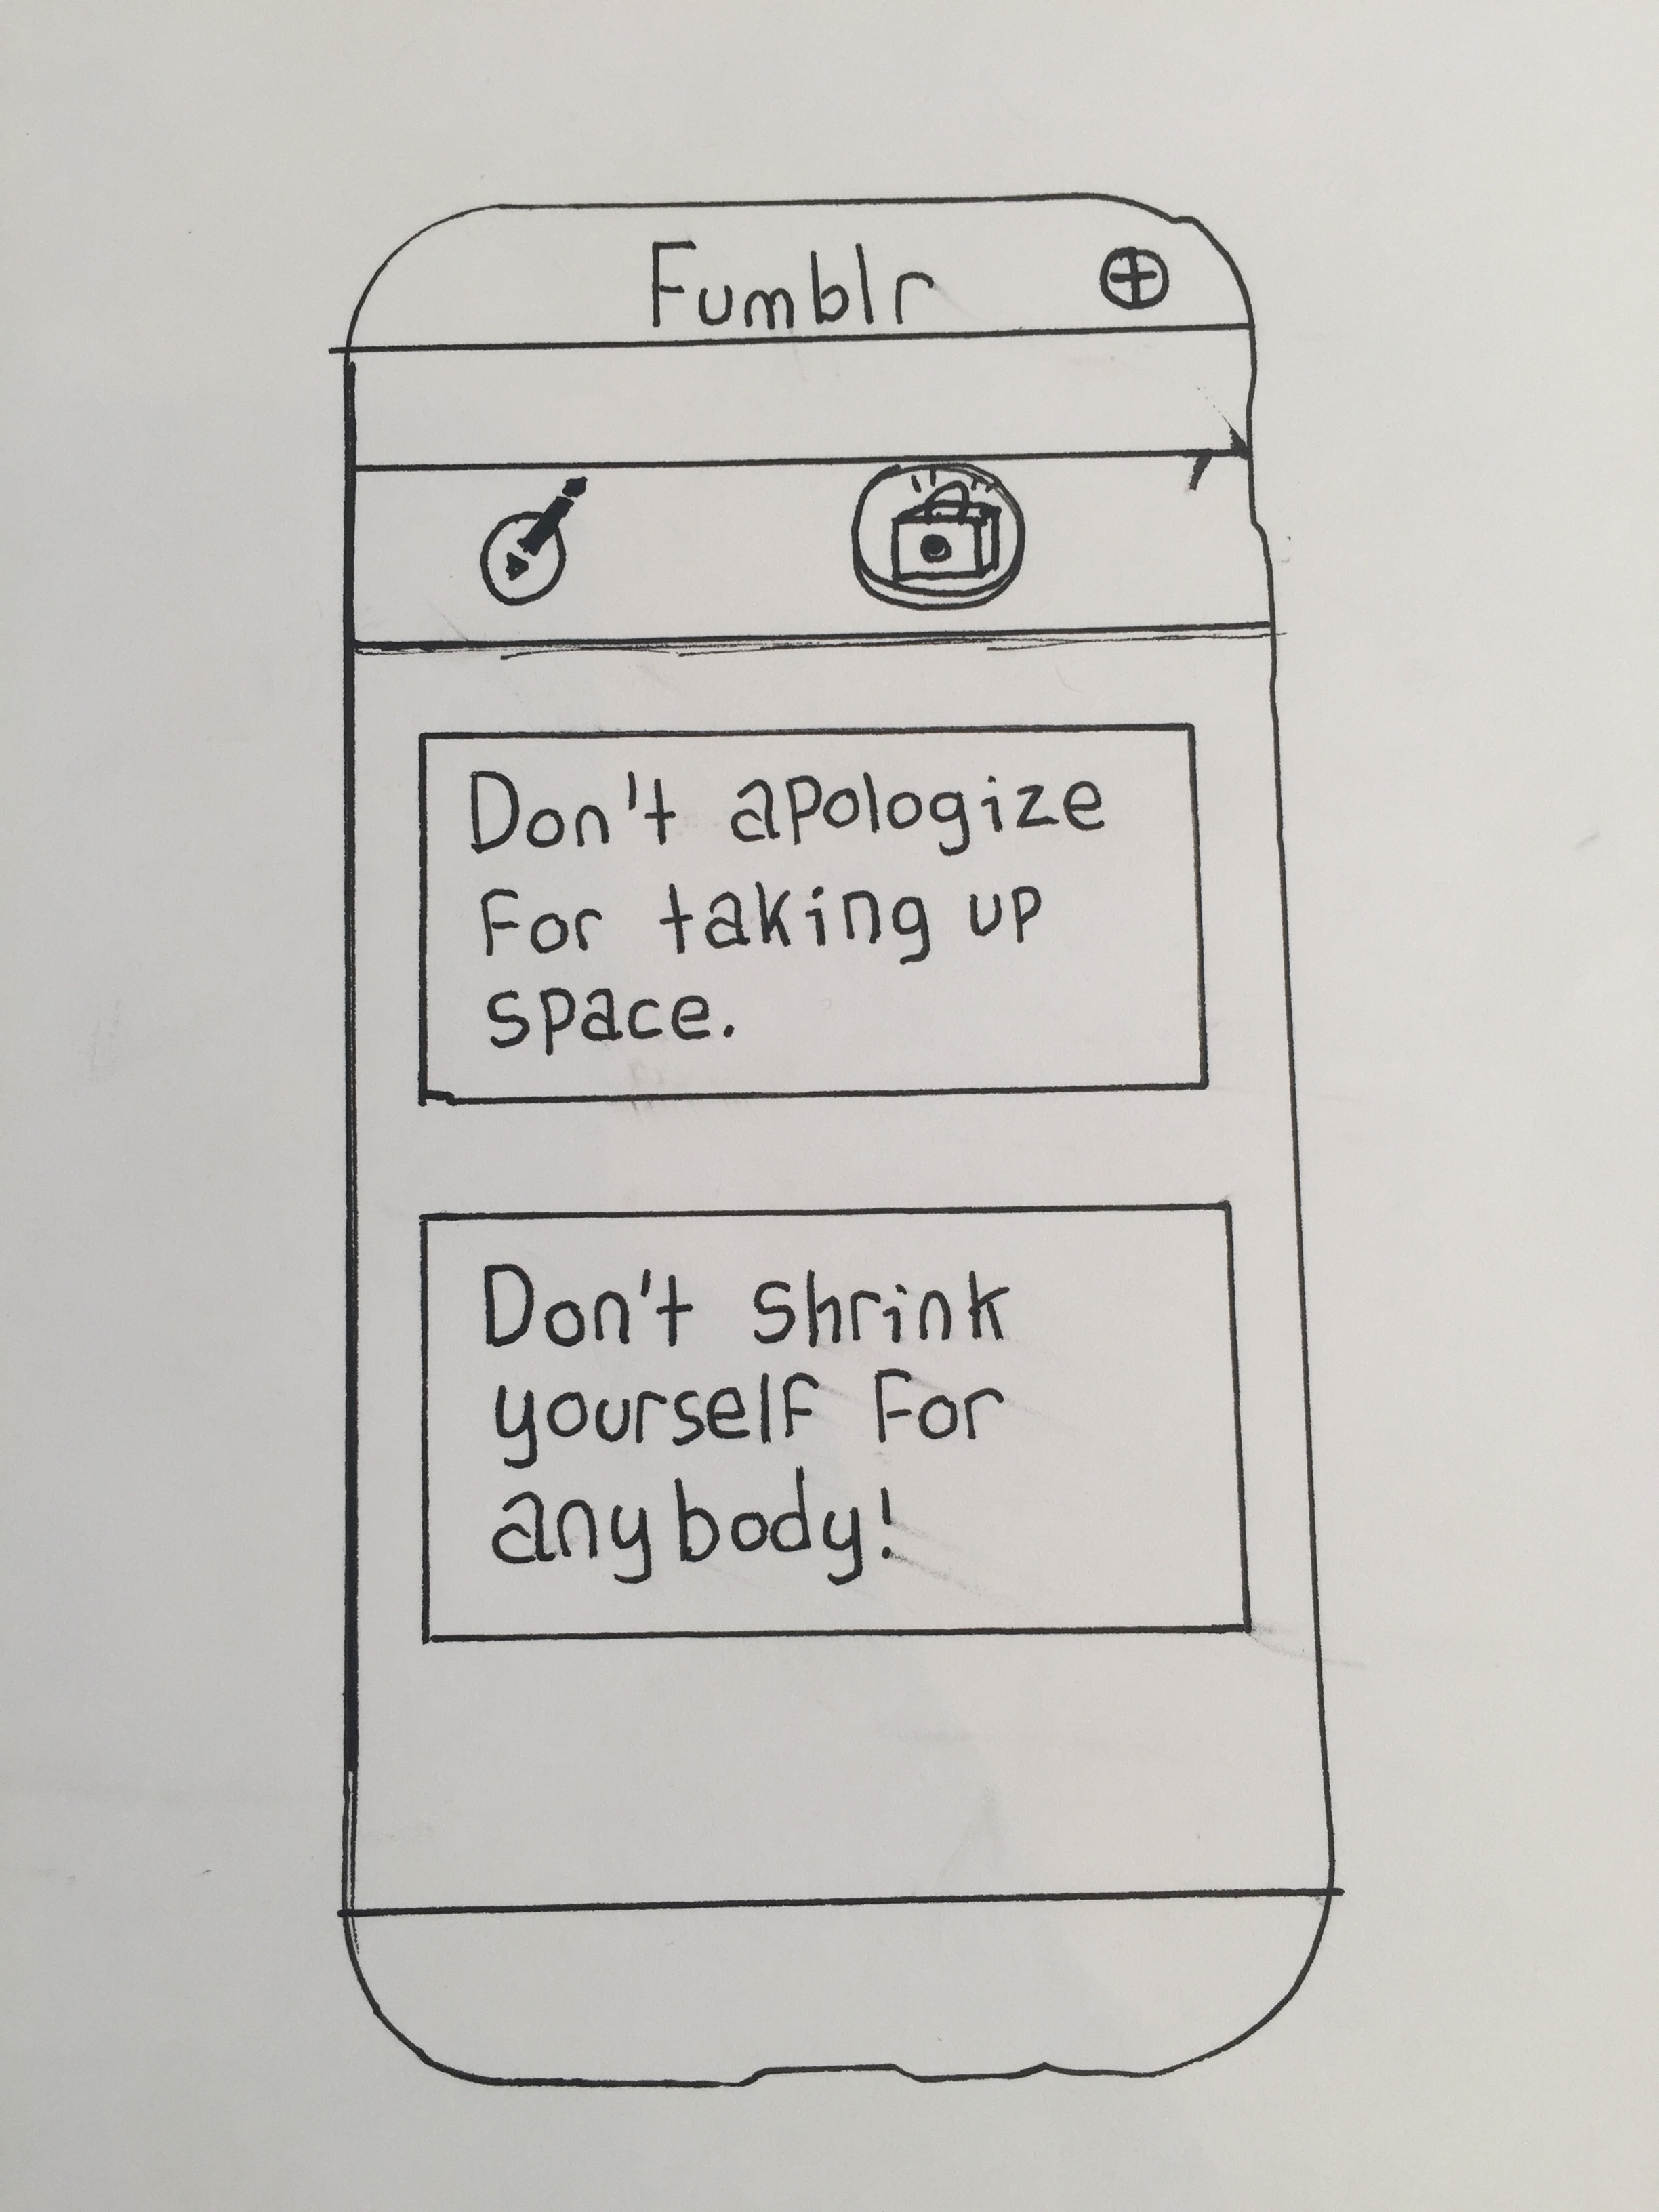 Fumblr
Don't apologize
for taking up
space.
Don't shrink
yourself for
anybody!